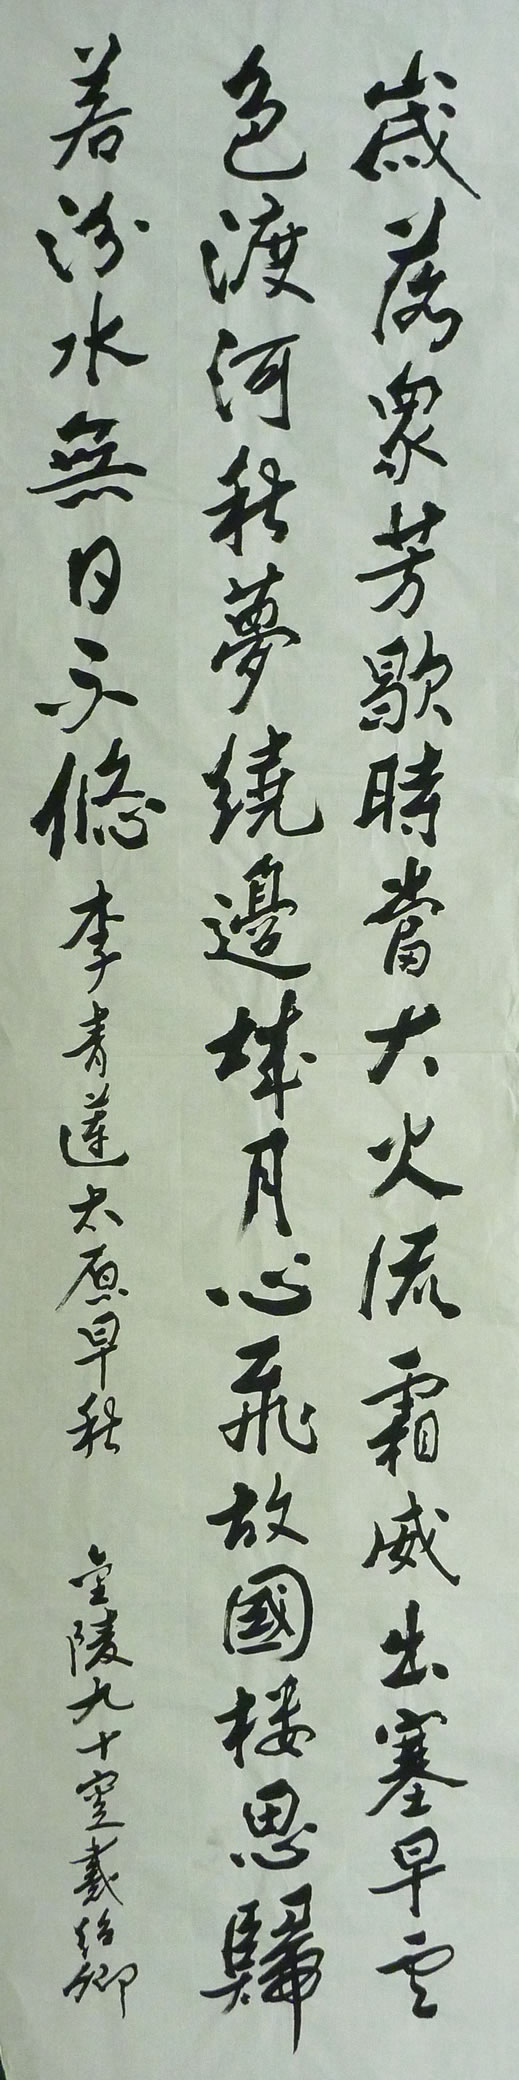 歲落衆芳歇時當大火流霜威出塞早雲
色渡河秋夢繞邊城月心飛故國楼思歸
若汾水無日不悠 李青蓮太原早秋 金陵九十叟戴紹卿